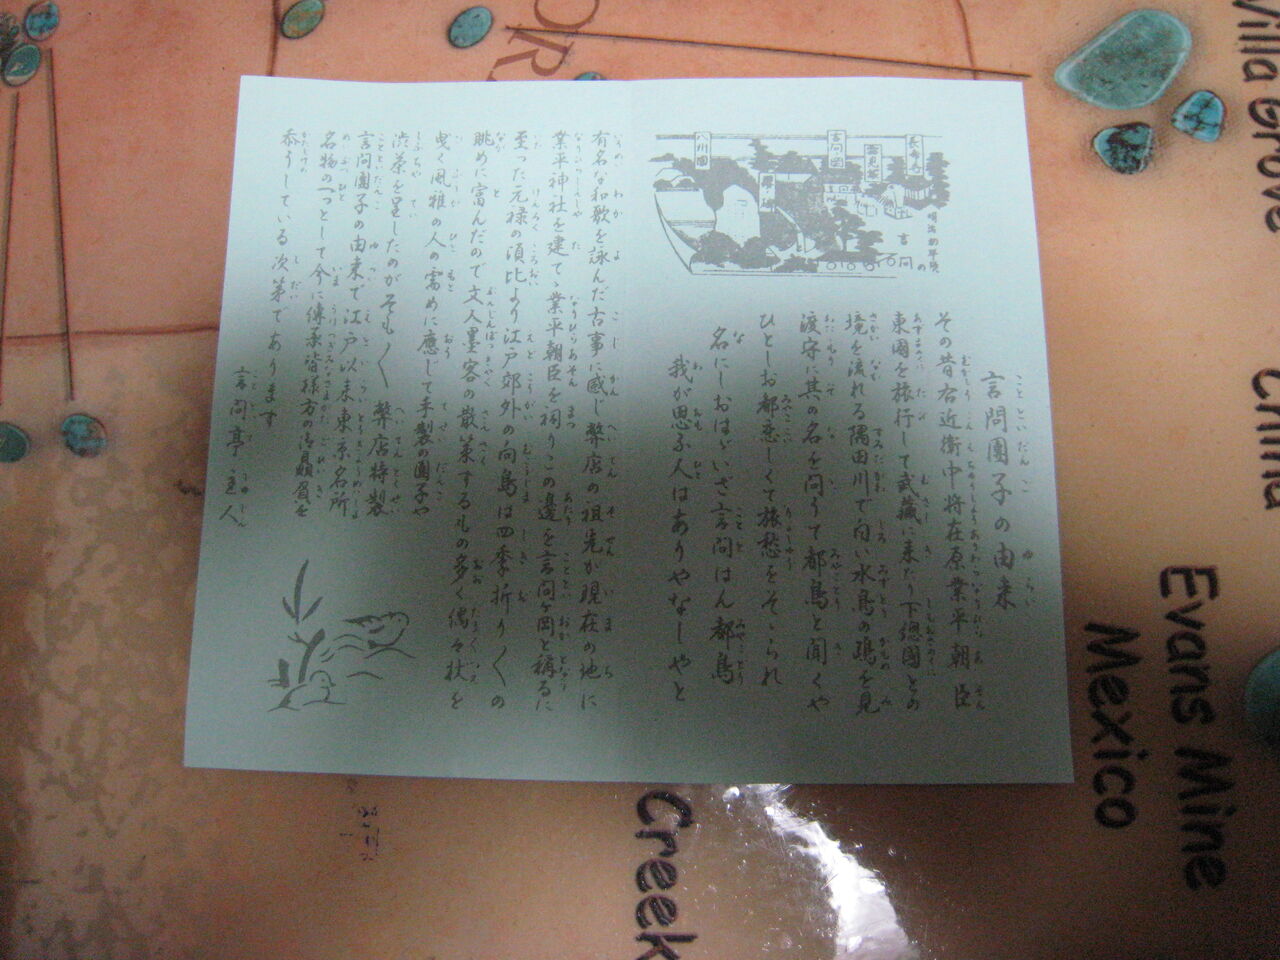 言問團子の由来
その昔右近衛中将在原業平朝臣
東國を旅行して武藏に来たり下總國との
境を流れる隅田川で白い水鳥の鴎を見
渡守に其の名を問うて都鳥と聞くや
ひとしお都恋しくて旅愁をそゝられ
名にしおはゞいざ言問はん都鳥
我が思ふ人はありやなしやと
有名な和歌を詠んだ古事に感じ弊店の祖先が現在の地に
業平神社を建て業平朝臣を祠りこの邊を言問ヶ岡と稱るに
至った元禄の頃比より江戸郊外の向島は四季折り〱の
眺めに富んだので文人墨客の散策するもの多く偶々杖を
曳く風雅の人の需めに應じて手製の團子や
渋茶を呈したのがそも〱弊店特製
言問團子の由来で江戸以来東京名所
名物の一つとして今に傳承皆様方の御贔屓を
忝うしている次第であります
言問亭主人
長命寺
言問岡
八州園
明治初年頃の
言問
Villa Grove
China
Evans Mine
Mexico
Creek